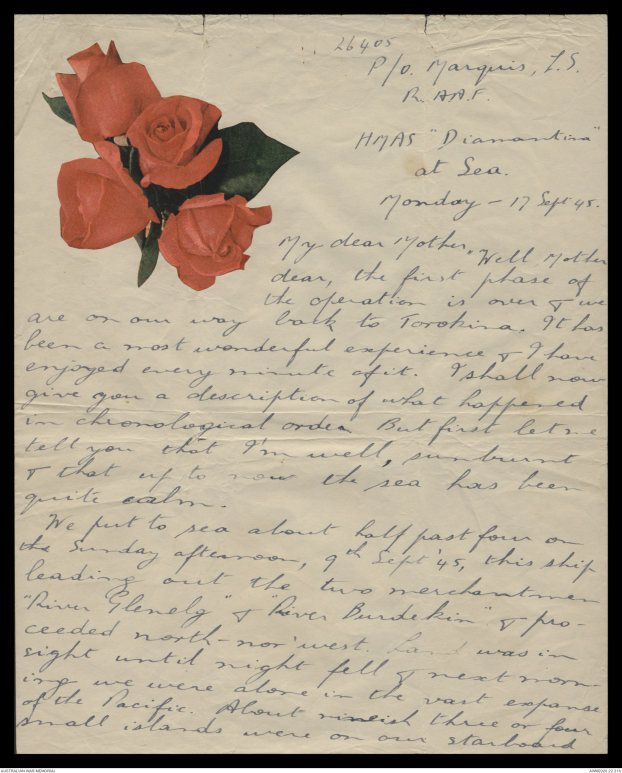 26405
P/o. Marquis, L.S.
R.A.A.F.
HMAS "Diamantina"
at Sea.
Monday - 17 Sept 45.
My dear Mother,
"Well Mother
dear, the first phase of
the operation is over & we
are on our way back to Torokina. It has
been a most wonderful experience & I have
enjoyed every minute of it. I shall now
give you a description of what happened
in chronological order. But first let me
tell you that I'm well, sunburnt
& that up to now the sea has been
quite calm.
We put to sea about half past four on
the Sunday afternoon, 9th Sept '45, this ship
leading out the two merchantmen
"River Glenelg" & "River Burdekin" & pro-
ceeded north-nor'west. Land was in
sight until night fell & next morn-
ing we were alone in the vast expanse
of the Pacific. About nineish three or four
small islands were on our starboard
AUSTRALIAN WAR MEMORIAL